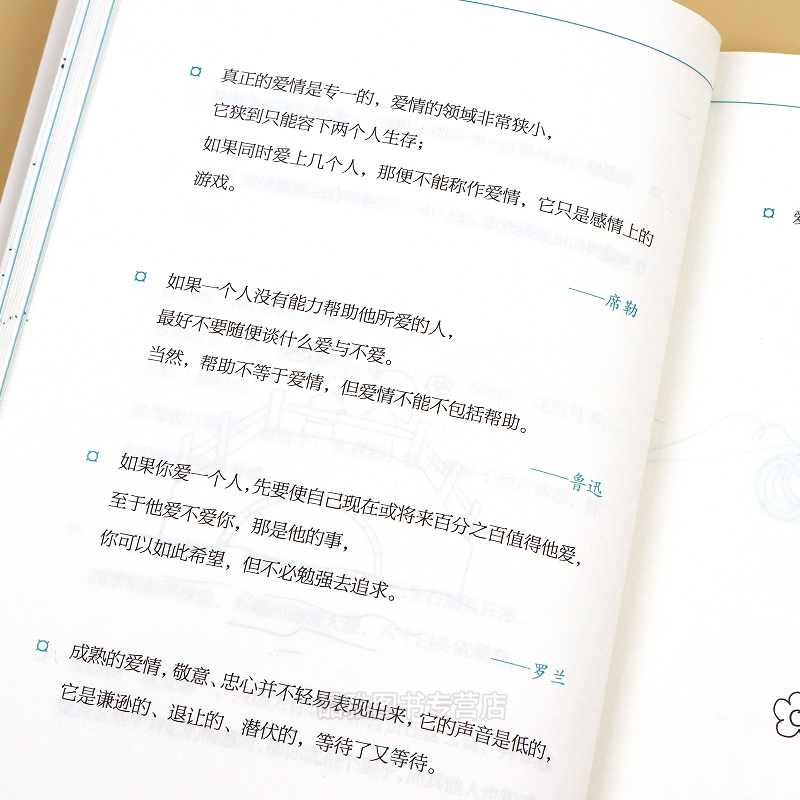 真正的爱情是专一的，爱情的领域非常狭小，
它狭到只能容下两个人生存；
如果同时爱上几个人，那便不能称作爱情，它只是感情上的
游戏。
——席勒
如果一个人没有能力帮助他所爱的人，
最好不要随便谈什么爱与不爱。
当然，帮助不等于爱情，但爱情不能不包括帮助。
——鲁迅
如果你爱一个人，先要使自己现在或将来百分之百值得他爱，
至于他爱不爱你，那是他的事，
你可以如此希望，但不必勉强去追求。
——罗兰
成熟的爱情，敬意、忠心并不轻易表现出来，它的声音是低的，
它是谦逊的、退让的、潜伏的，等待了又等待。
图书专营店